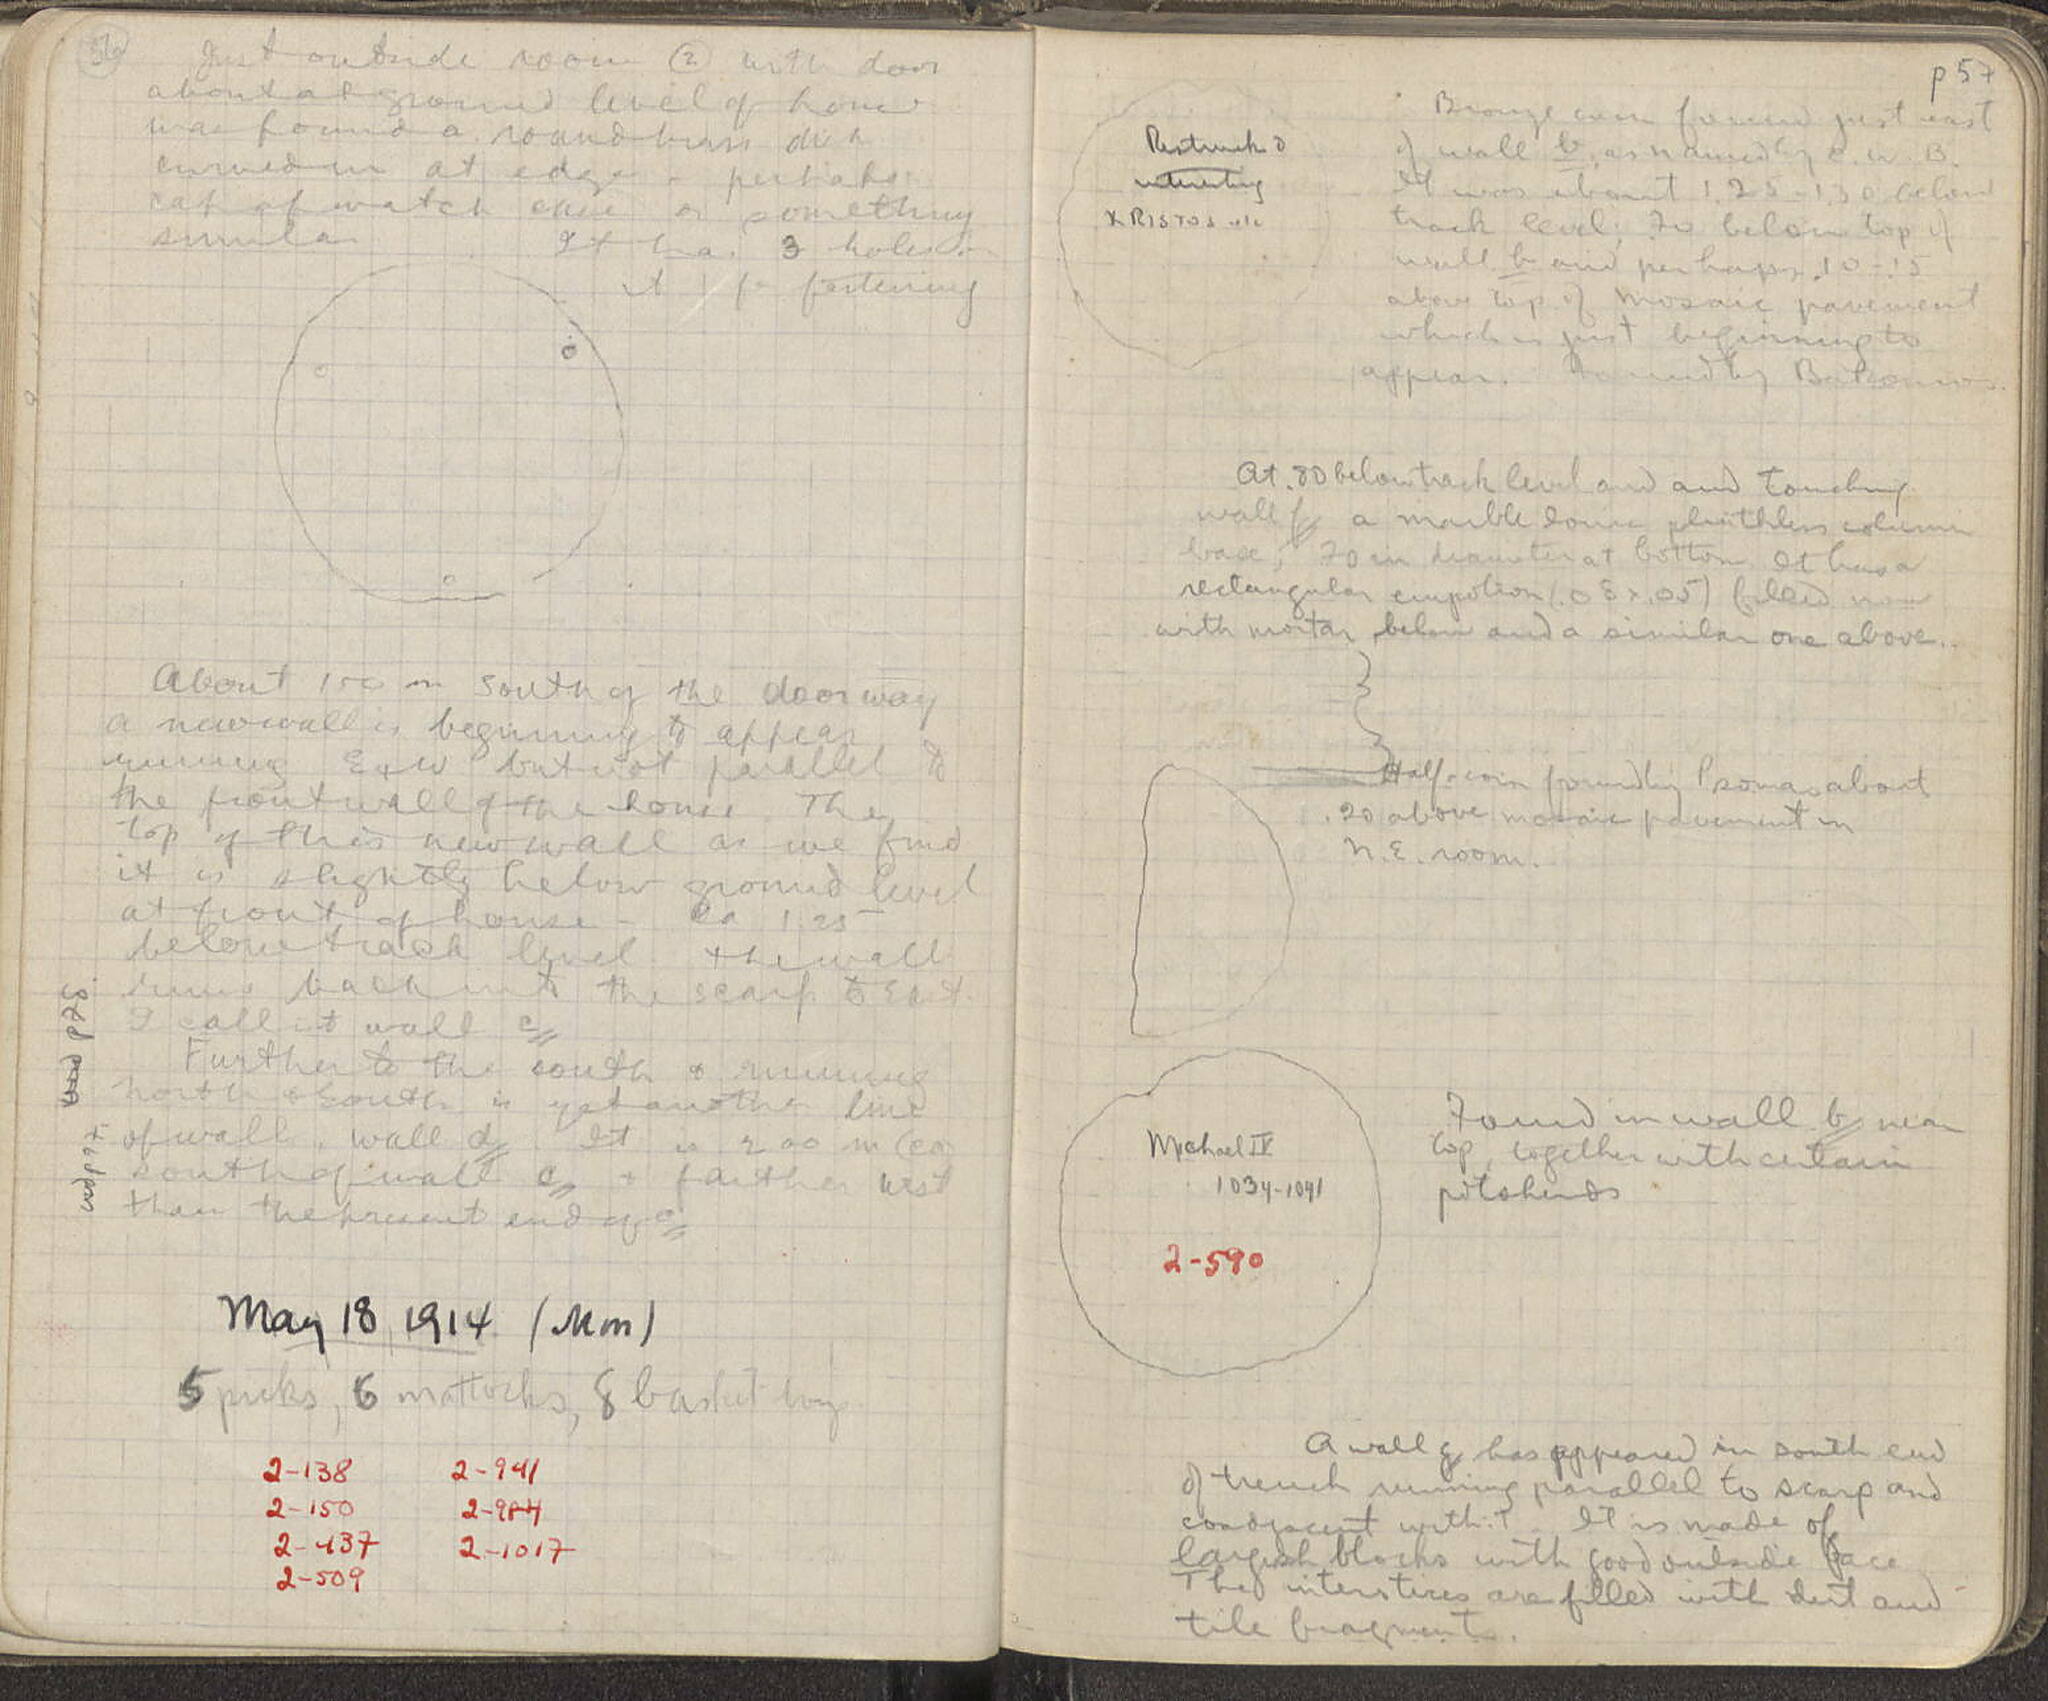 56
Just outside room ② with door
about at ground level of house
was found a round brass disk
curved in at edge - perhaps
cap of watch case or something
similar It has 3 holes in
it for fastening
About 1.50 m south of the doorway
a new wall is beginning to appear
running E & W but not parallel to
the front wall of the house. The
top of this new wall as we find
it is slightly below ground level
at front of house - ca 1.25
below track level. & the wall
runs back into the scarp to East.
I call it wall c
Further to the south & running
north & south is yet another line
of wall, wall d. It is 2.00 m (ca)
south of wall c & farther west
than the present end of c
May 18 1914 (Mon)
5 picks, 6 mattocks, 8 basket boys
2-138 2-941
2-150 2-984
2-437 2-1017
2-509
p 57
Restruck
interesting
XRISTOS etc
Bronze coin found just east
of wall b, as named by C. W. B.
It was about 1.25-1.30 below
track level, .70 below top of
wall b and perhaps .10-.15
above top of mosaic pavement
which is just beginning to
appear. Found by
At .80 below track level and and touching
wall f a marble Ionic plinthless column
base, .70 in diameter at bottom. It has a
rectangular empolion (.08 x .05) filled now
with mortar below and a similar one above.
Half-coin found by Psomas about
.20 above mosaic pavement in
N.E. room.
Michael IV
1034-1041
2-590
Found in wall b near
top, together with certain
potsherds
A wall g has appeared in south end
of trench running parallel to scarp and
coadjacent with it. It is made of
largish blocks with good outside face
The interstices are filled with dirt and
tile fragments.